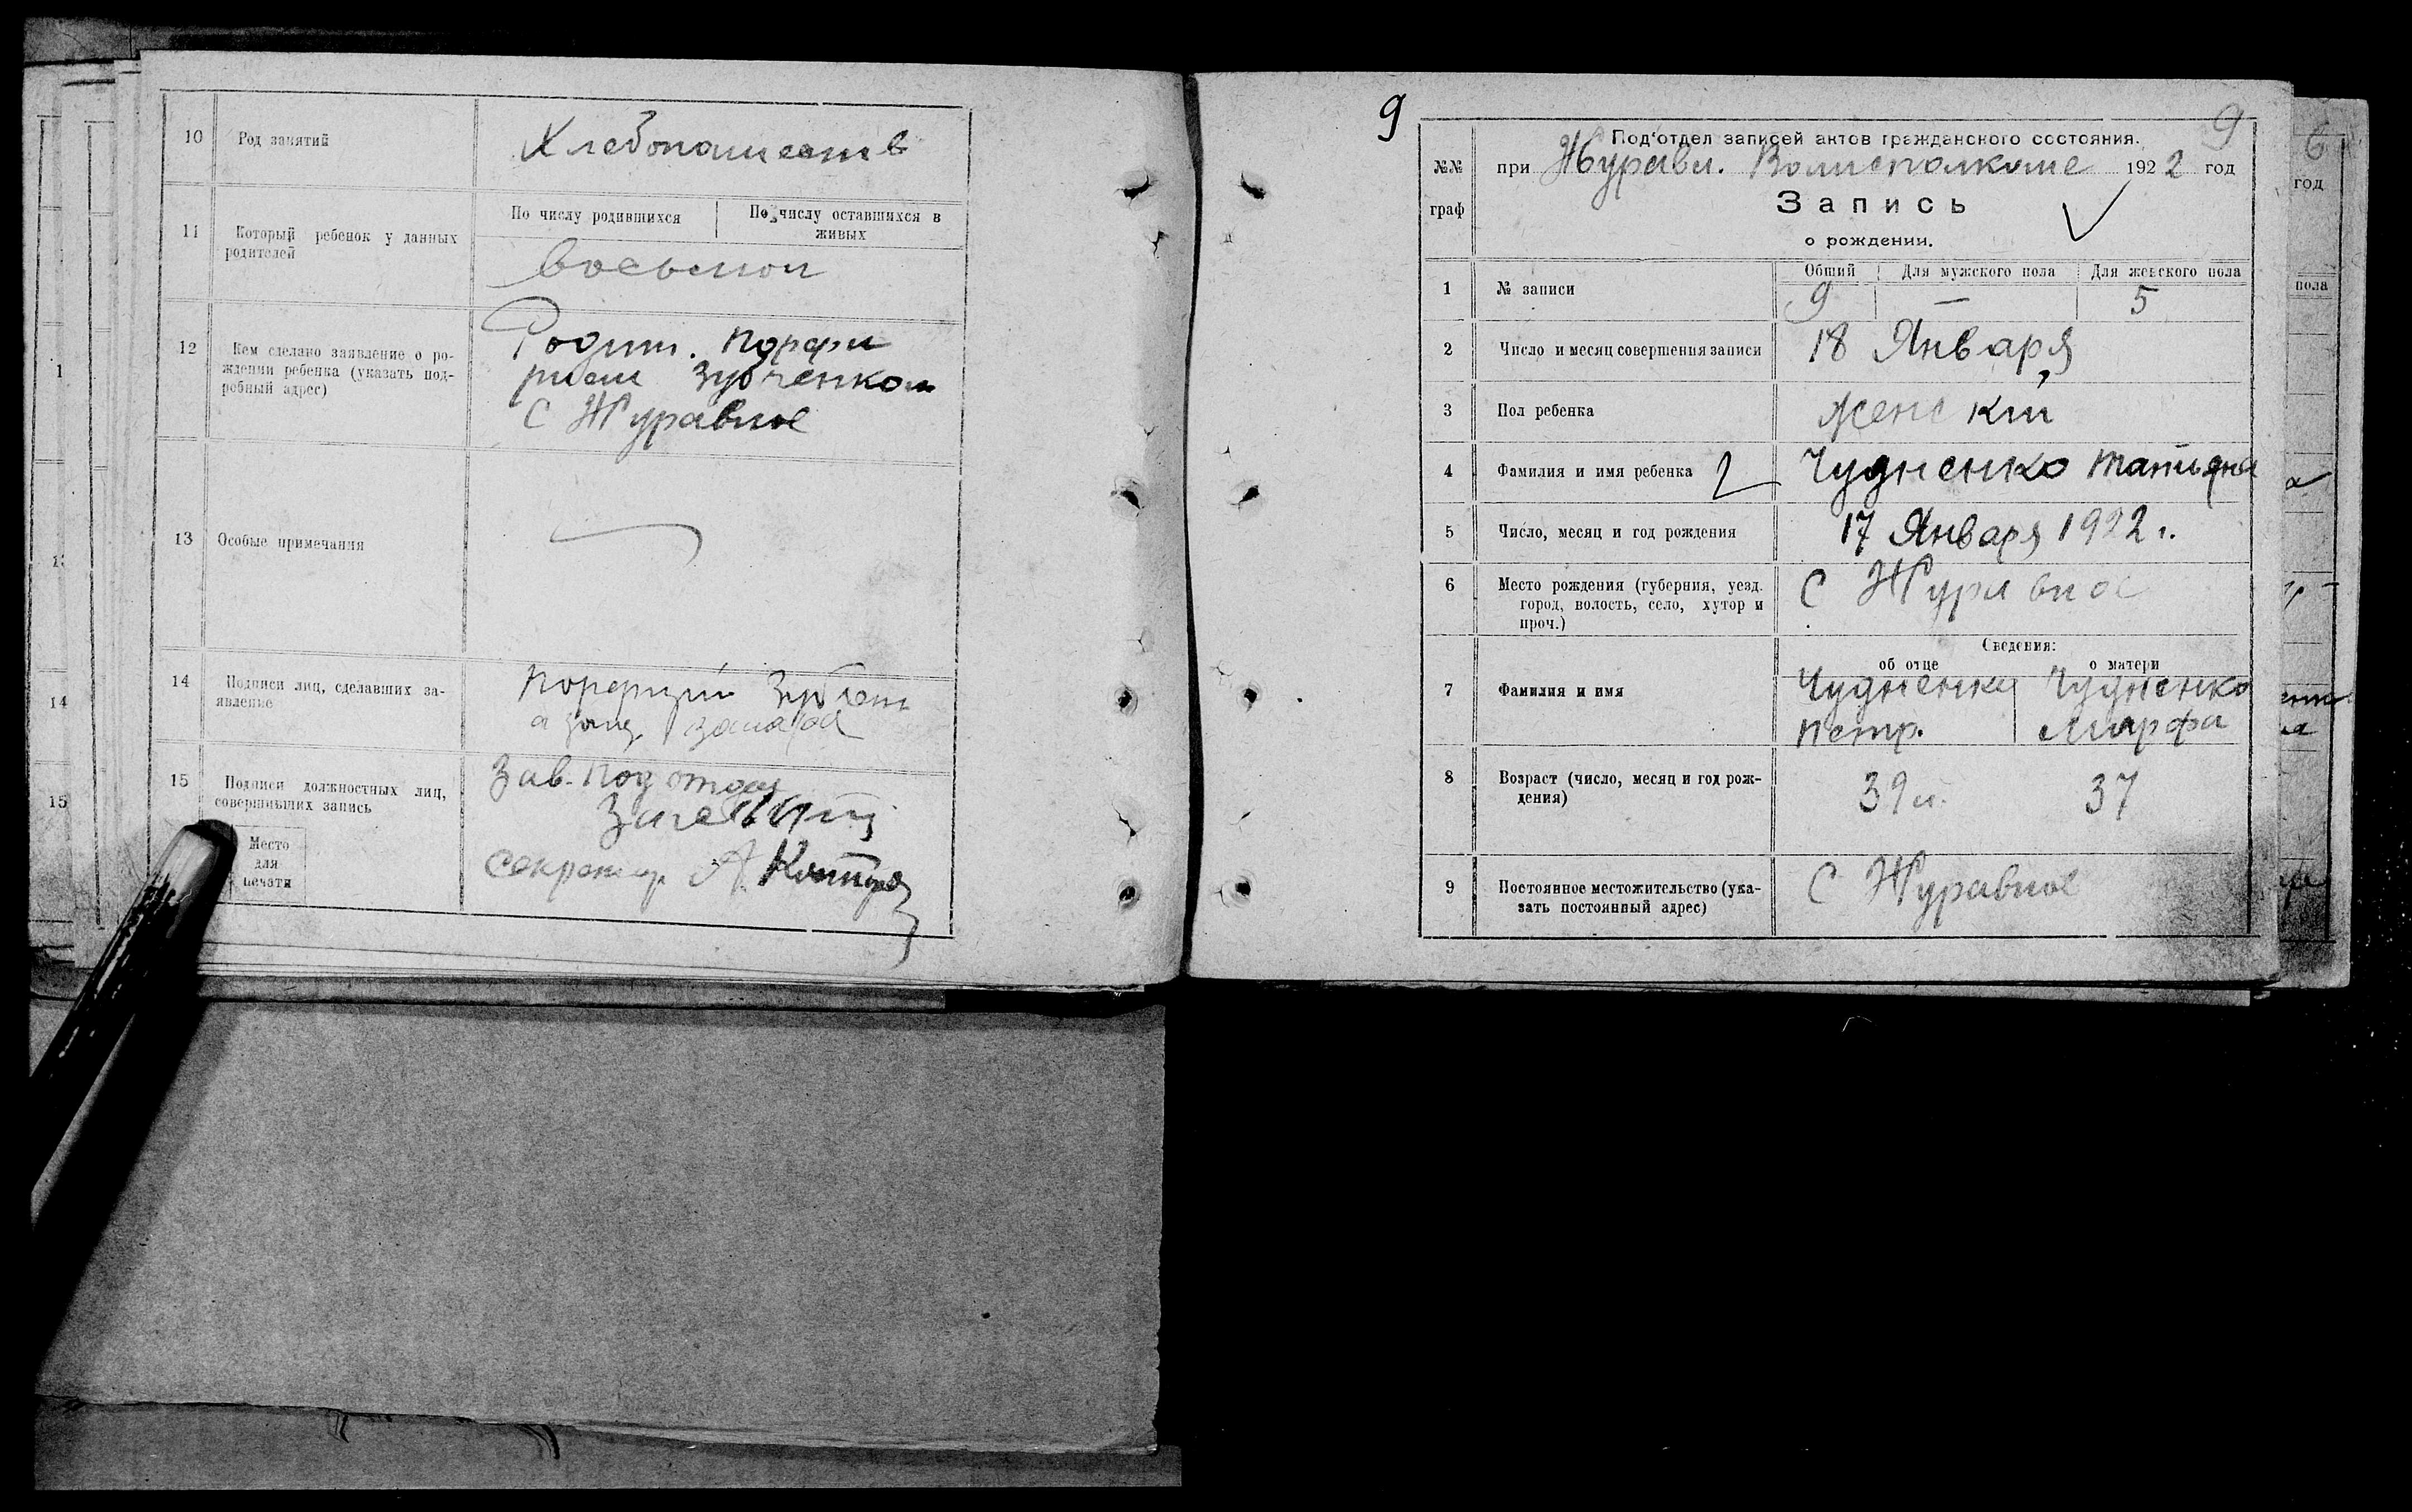 10 Род занятий Хлебопашеств
11 Который ребенок у данных родителей
По числу родившихся По числу оставшихся в живых
восьмой
12 Кем сделано заявление о ро-
ждении ребенка (указать под-
робный адрес)
Родит. Порфи
рием Зубченком
С Журавное
13 Особые примечания
14 Подписи лиц, сделавших за-
явление
Порфирий
15 Подписи должностных лиц,
совершивших запись
Зав. Подотдел
Секретар А
Место
для
печати
1
14
15
9
9
Под'отдел записей актов гражданского состояния.
№№
граф
при Журавл. Волисполкоме 1922 год
Запись
о рождении.
1 № записи
Общий Для мужского пола Для женского пола
9 — 5
2 Число и месяц совершения записи 18 Января
3 Пол ребенка женский
4 Фамилия и имя ребенка Чудненко Татьяна
5 Число, месяц и год рождения 17 Января 1922 г.
6 Место рождения (губерния, уезд.
город, волость, село, хутор и
проч.)
С Журавное
Сведения:
об отце о матери
7 Фамилия и имя
Чудненко Чудненко
Петр. Марфа
8 Возраст (число, месяц и год рож-
дения)
39 л. 37
9 Постоянное местожительство (ука-
зать постоянный адрес)
С Журавное
6
год
пола